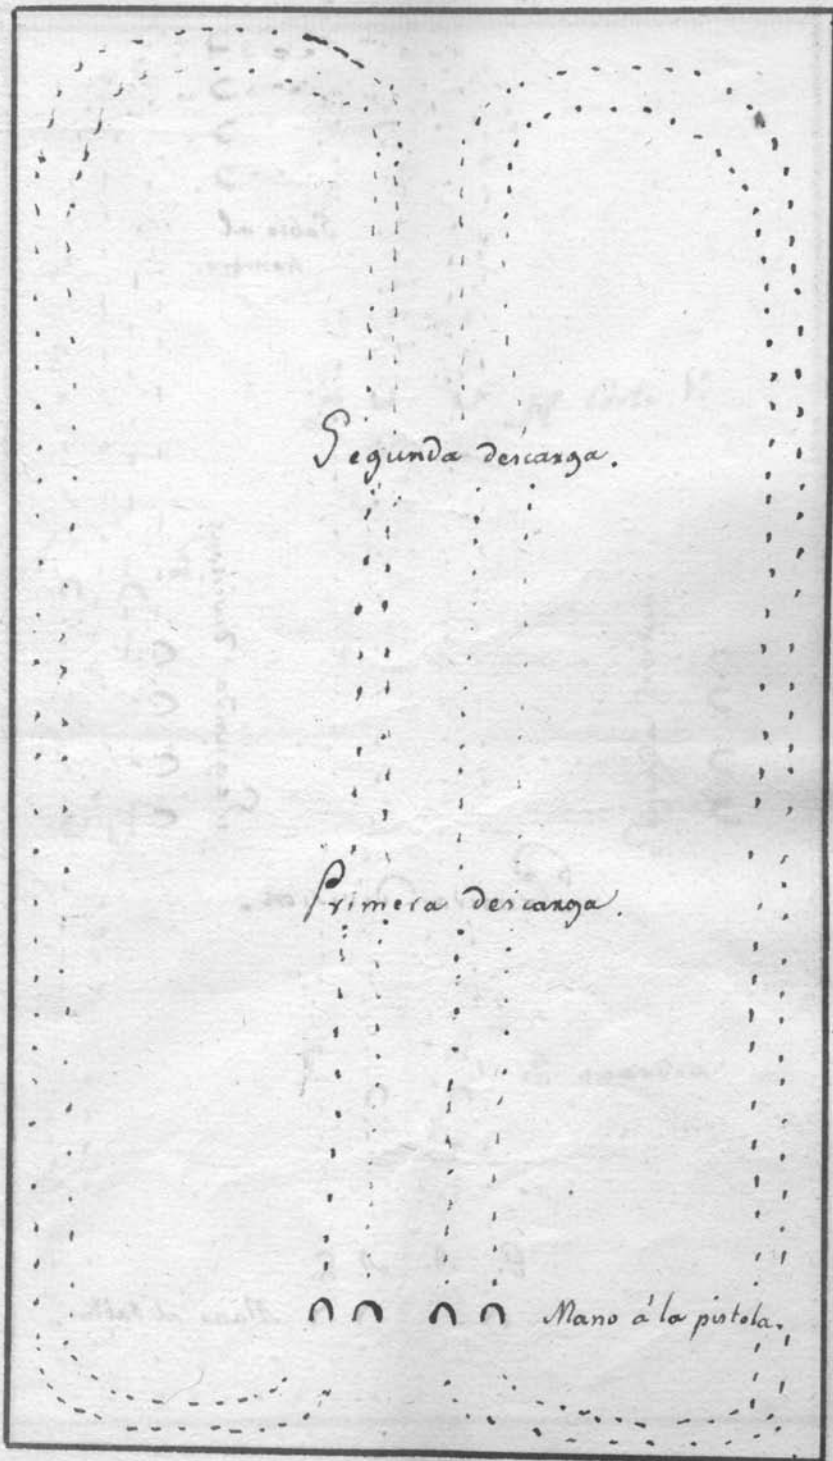 Segunda descarga.
Primera descarga.
Mano á la pistola.